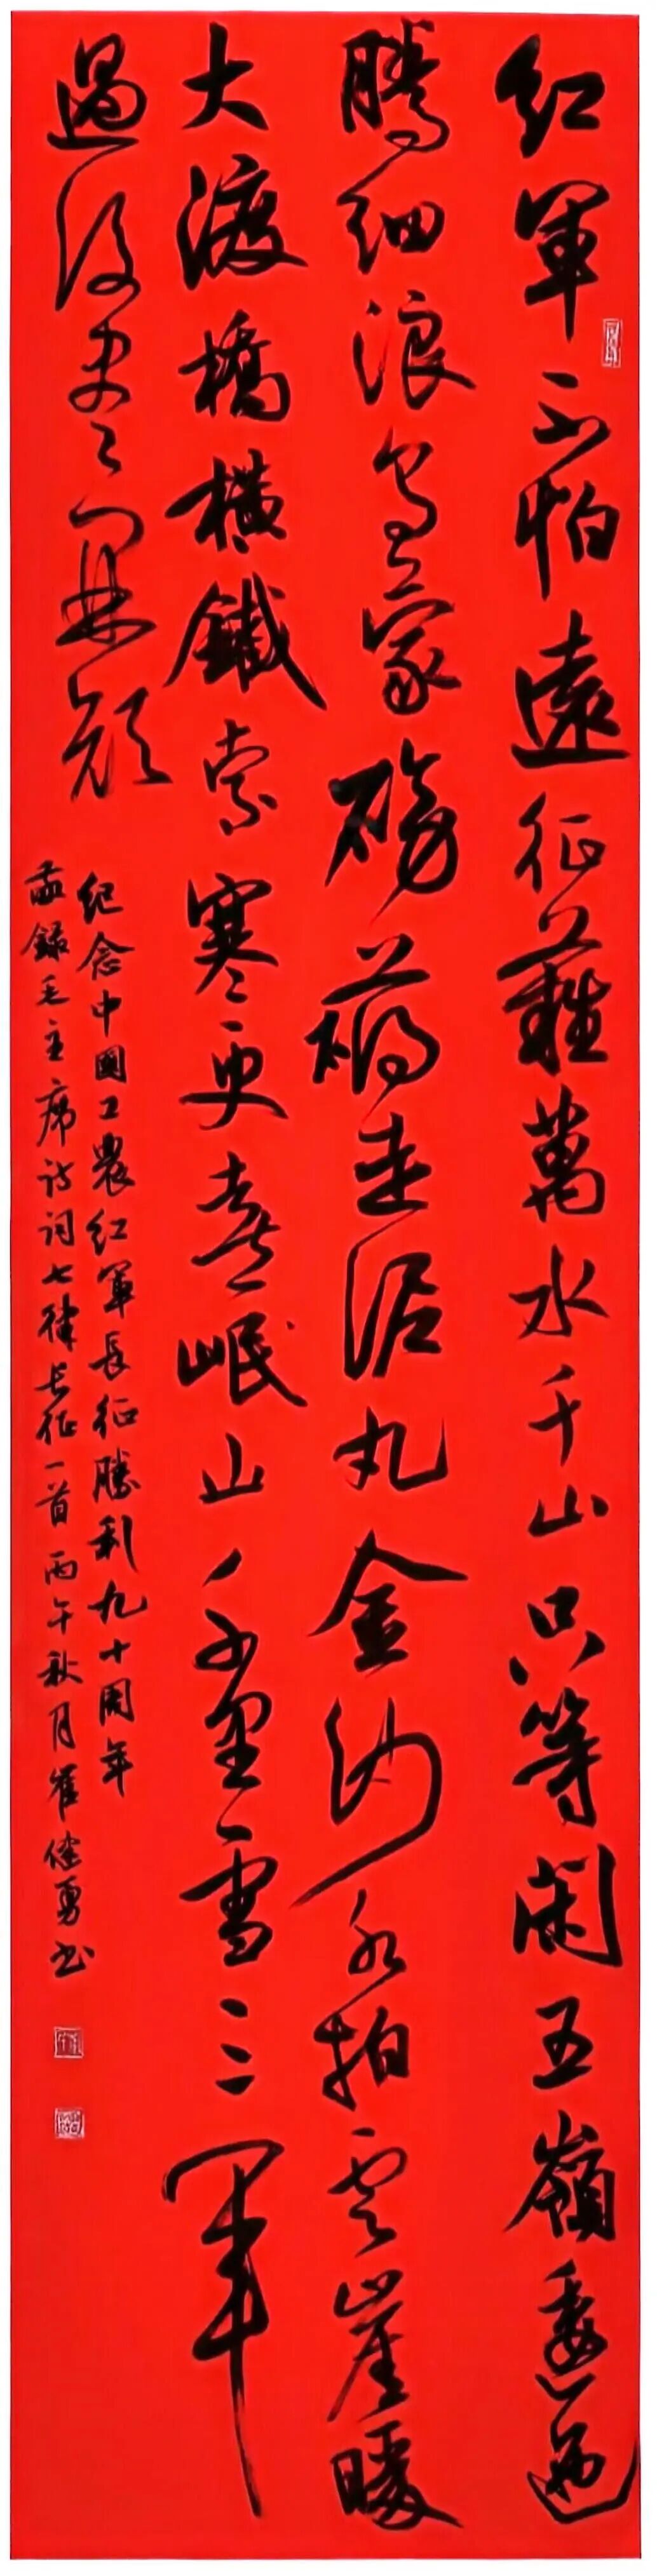 紅軍不怕遠征難萬水千山只等閑五嶺逶迤
騰細浪烏蒙磅礴走泥丸金沙水拍雲崖暖
大渡橋橫鐵索寒更喜岷山千里雪三軍
過後盡開顏
紀念中國工農紅軍長征勝利九十周年
錄毛主席詩詞七律長征一首丙午秋月崔健勇书